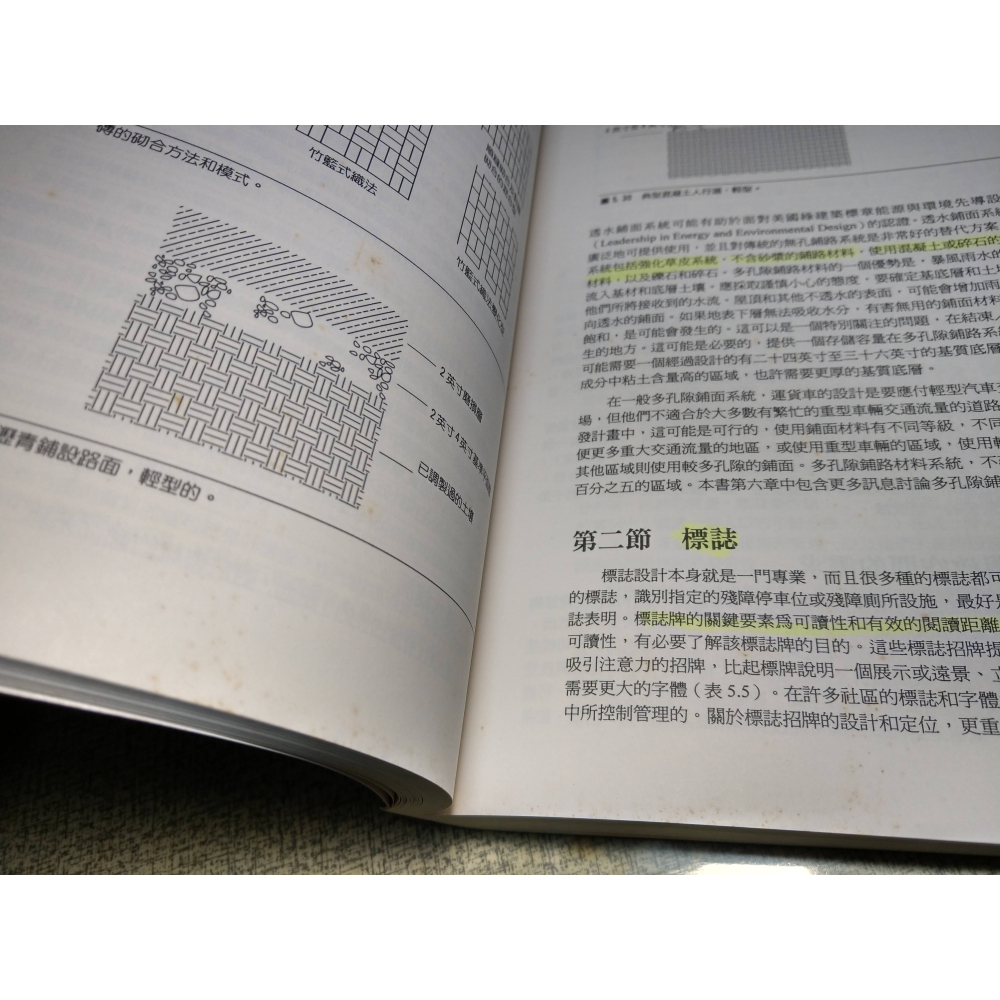 磚的砌合方法和模式。
竹籃式織法
竹籃式織法變化型
2英寸磨損層
2英寸4英寸基
已調製過的土壤
瀝青鋪設路面，輕型的。
典型混凝土人行道，輕型。
透水鋪面系統可能有助於面對美國綠建築標章能源與環境先導設
（Leadership in Energy and Environmental Design）的認證。透水鋪面系統
廣泛地可提供使用，並且對傳統的無孔鋪路系統是非常好的替代方案
系統包括強化草皮系統，不含砂漿的鋪路材料，使用混凝土或碎石的
材料，以及礫石和碎石。多孔隙鋪路材料的一個優勢是，暴風雨水的
流入基材和底層土壤。應採取謹慎小心的態度，要確定基底層和土
他們所將接收到的水流。屋頂和其他不透水的表面，可能會增加雨
向透水的鋪面。如果地表下層無法吸收水分，有害無用的鋪面材料
飽和，是可能會發生的。這可以是一個特別關注的問題，在結凍
生的地方。這可能是必要的，提供一個存儲容量在多孔隙鋪路系
可能需要一個經過設計的有二十四英寸至三十六英寸的基質底層
成分中粘土含量高的區域，也許需要更厚的基質底層。
在一般多孔隙鋪面系統，運貨車的設計是要應付輕型汽車
場，但他們不適合於大多數有繁忙的重型車輛交通流量的道路
發計畫中，這可能是可行的，使用鋪面材料有不同等級，不同
便更多重大交通流量的地區，或使用重型車輛的區域，使用
其他區域則使用較多孔隙的鋪面。多孔隙鋪路材料系統，不
百分之五的區域。本書第六章中包含更多訊息討論多孔隙鋪
第二節 標誌
標誌設計本身就是一門專業，而且很多種的標誌都可
的標誌，識別指定的殘障停車位或殘障廁所設施，最好
誌表明。標誌牌的關鍵要素為可讀性和有效的閱讀距離
可讀性，有必要了解該標誌牌的目的。這些標誌招牌提
吸引注意力的招牌，比起標牌說明一個展示或遠景、立
需要更大的字體（表 5.5）。在許多社區的標誌和字體
中所控制管理的。關於標誌招牌的設計和定位，更重